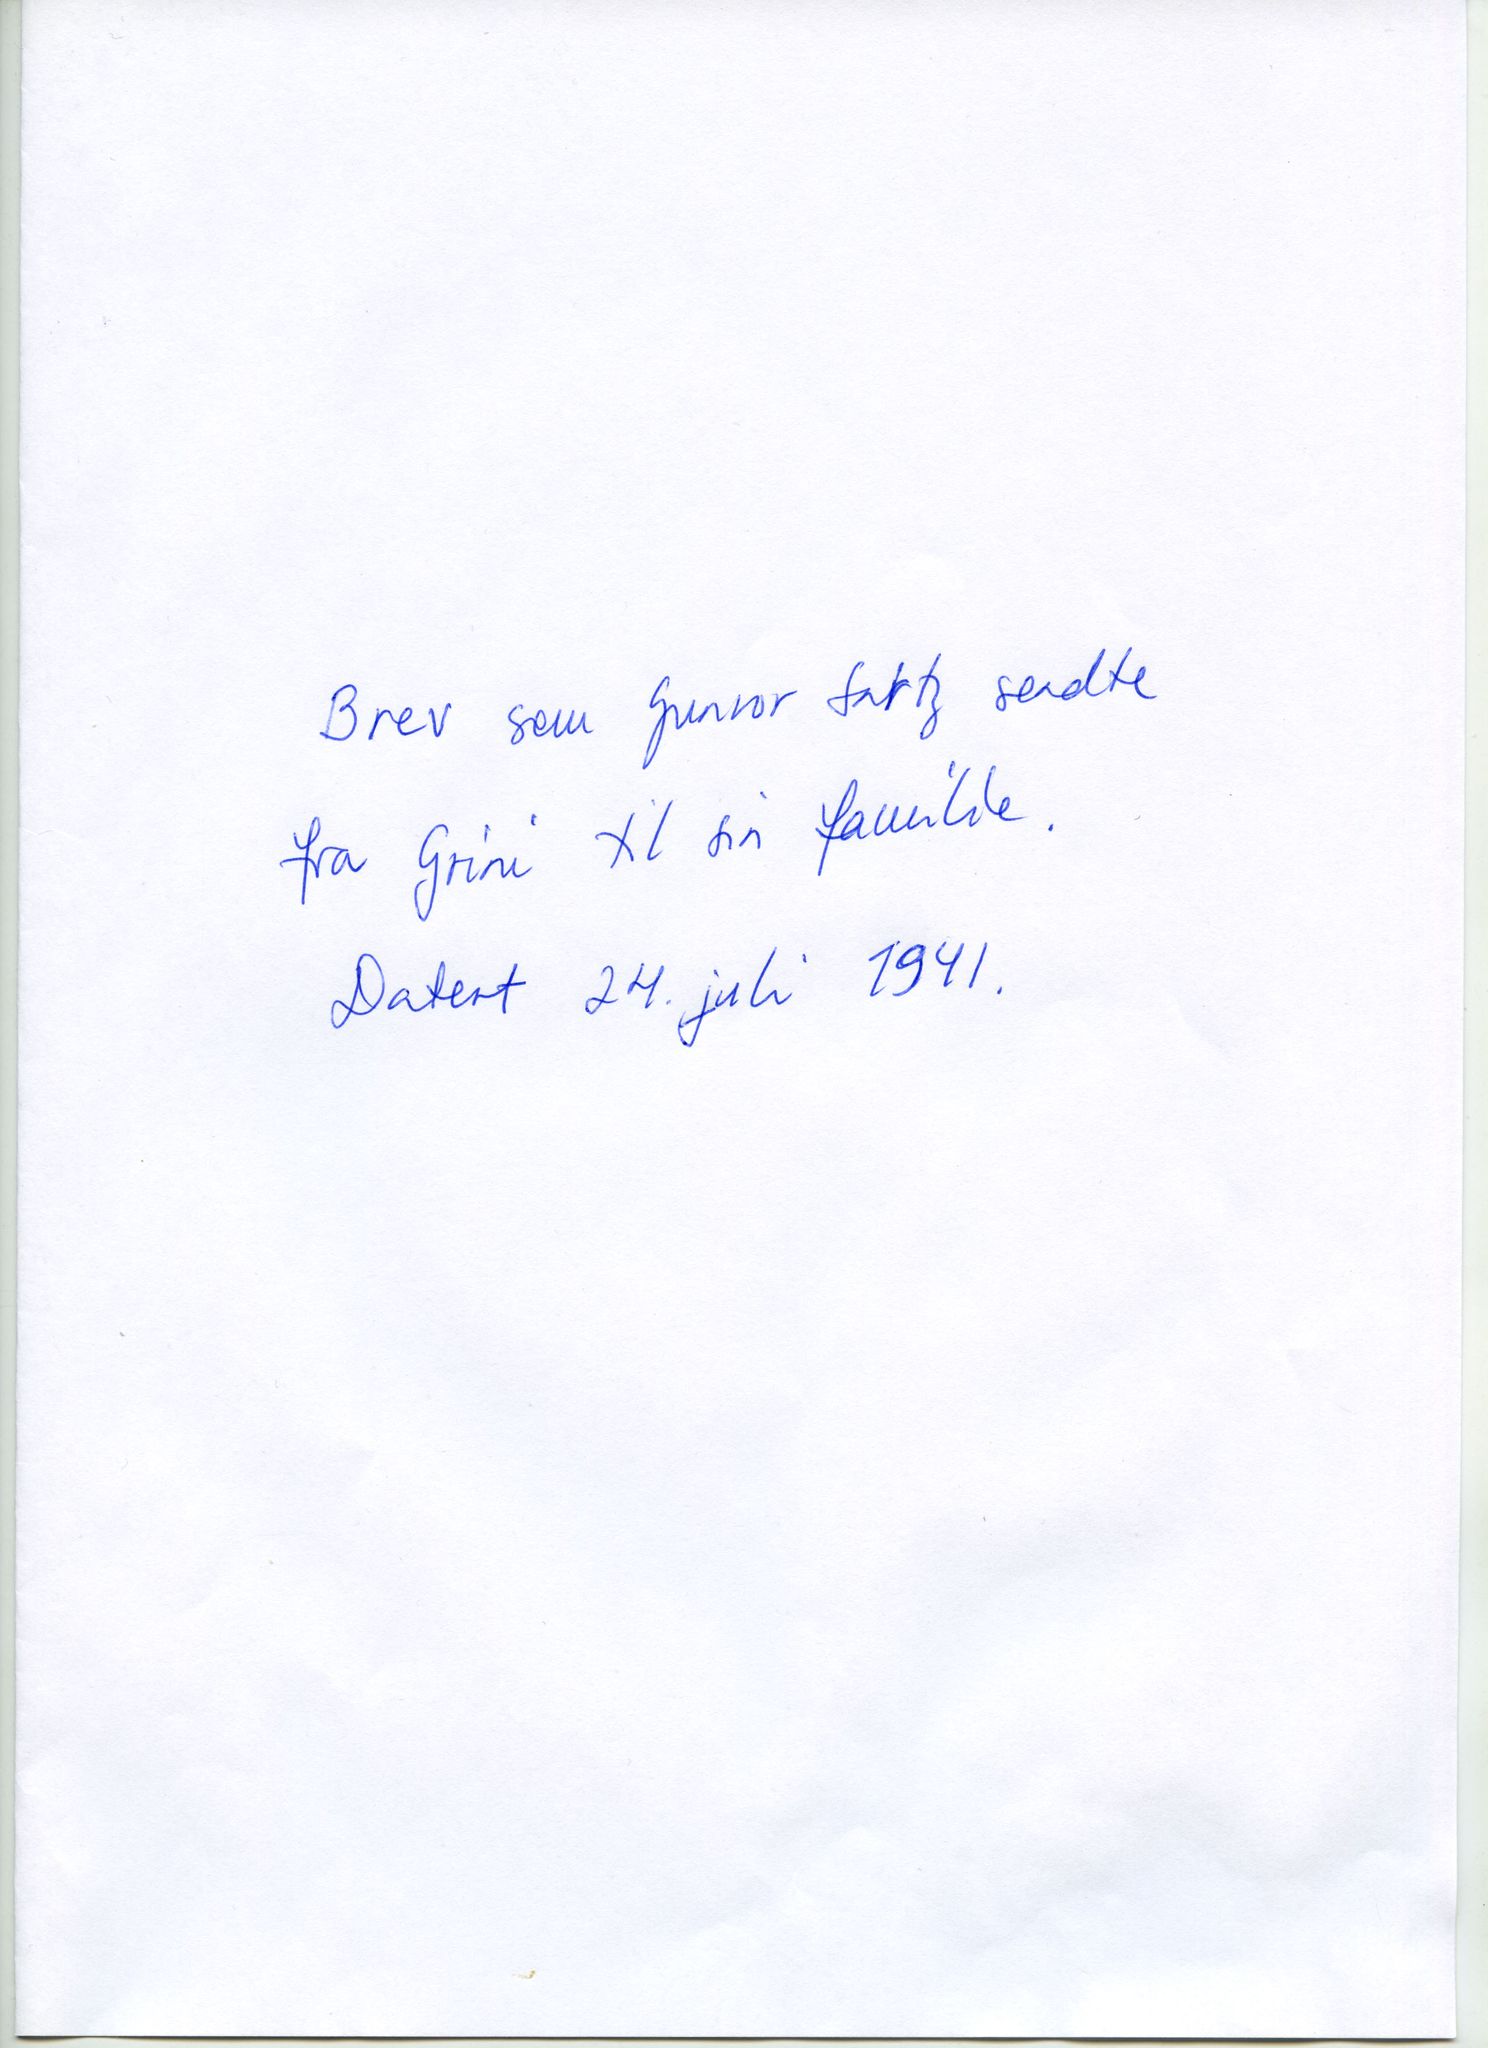 Brev som Gunvor Sartz sendte
fra Grini til sin familie.
Datert 24. juli 1941.